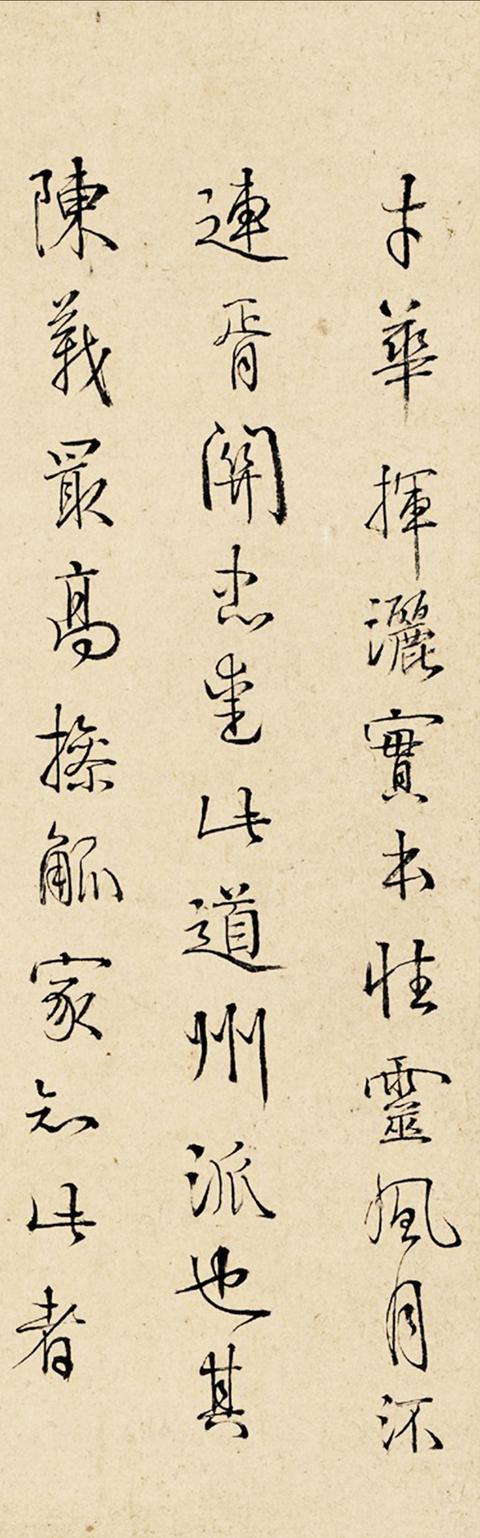 才華揮灑實本性靈風月汳
連胥關忠愛此道州派也其
陳義最高操觚家知此者